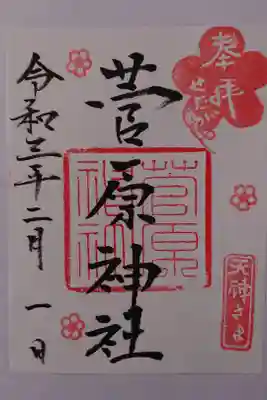 奉拝
菅原神社
菅原神社
天神さま
令和三年二月一日